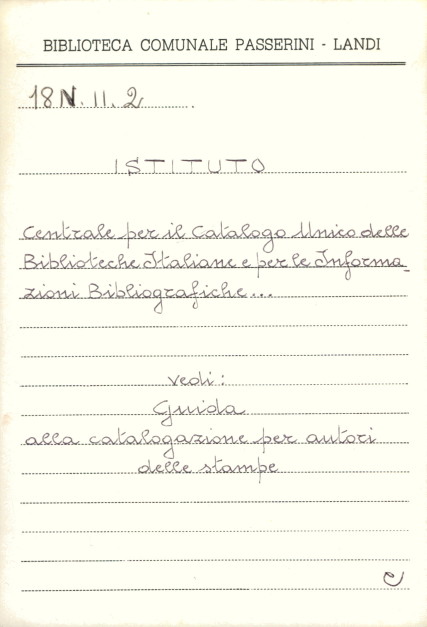 BIBLIOTECA COMUNALE PASSERINI - LANDI
18 N. II. 2
ISTITUTO
Centrale per il Catalogo Unico delle
Biblioteche Italiane e per le Informa_
zioni Bibliografiche...
vedi:
Guida
alla catalogazione per autori
delle stampe